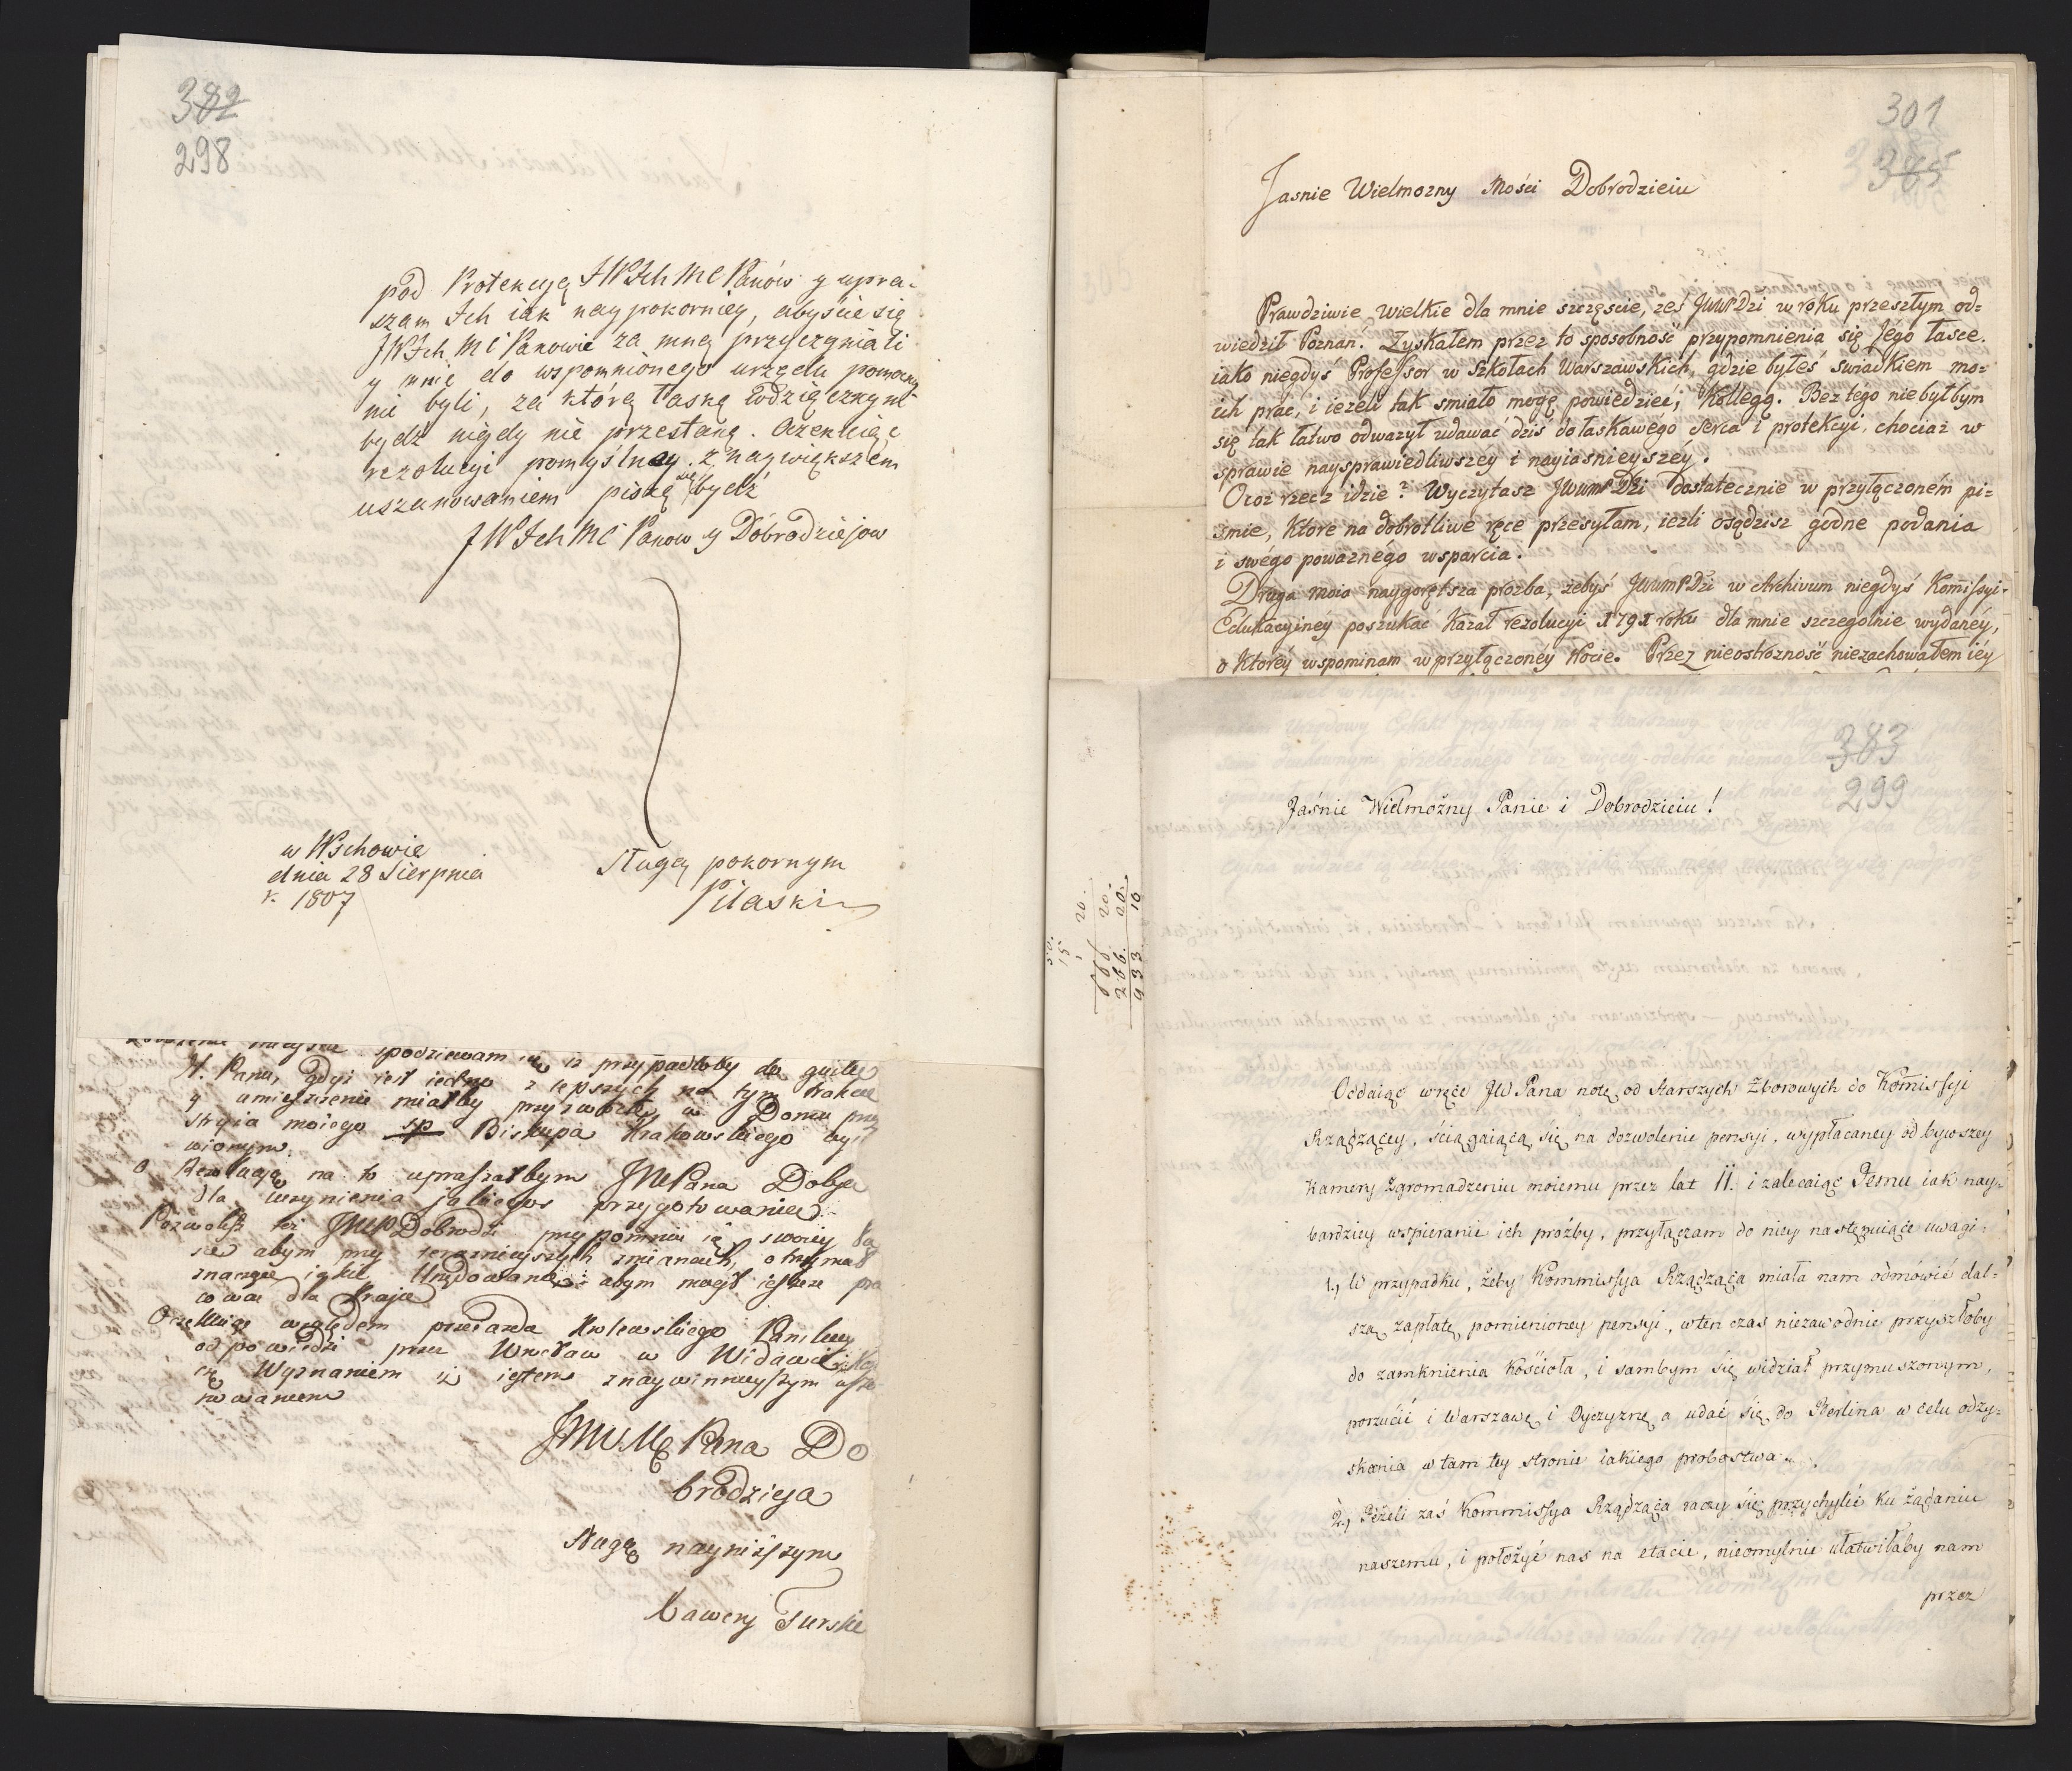 382
298
pod Protekcyą JWJch MC Panów y upra-
szam Ich iak naypokorniey, abyście się
JWJch MC Panowie za mną przyczyniali
y mnie do wspomnionego urzędu pomocny-
mi byli, za którą łaskę wdzięcznym
bydź nigdy nie przestanę. Oczekuiąc
rezolucyi pomyślney z naywiększem
uszanowaniem piszę się bydź
JWJch MC Panow y Dobrodziejow
w Wschowie
dnia 28 Sierpnia
r. 1807
sługą pokornym
Pilaski
spodziewam się iż przypadłoby do gustu
W. Panu, gdyż iest iedno z lepszych na tym trakcie
y umieszczenie miałby przyzwoite, w Domu przez
Stryia moiego sp Biskupa Krakowskiego wysta
wionym.
O Rezolucyą na to upraszałbym JWPana Dobr
dla uczynienia jakiegos przygotowania.
Pozwolisz też JWP Dobrodz przypomnieć się swoiey ła
sce abym przy teraznieyszych zmianach, otrzymał
znaczne iakie Urzędowanie: abym mogł ieszcze pra
cować dla Kraju
Oczekuiąc względem przeiazdu Krolewskiego Łaskawey
odpowiedzi przez Wrocław w Widawie
z Wyznaniem iż iestem z naywinnieyszym usza-
nowaniem
JWWMC Pana Do
brodzieja
Sługą nayniższym
Xawery Turski
301
385
Jasnie Wielmozny Mości Dobrodzieiu
Prawdziwie wielkie dla mnie szczęscie, ześ JWWPDzi w roku przeszłym od=
wiedził Poznań. Zyskałem przez to sposobność przypomnienia się Jego łasce.
iako niegdyś Professor w szkołach Warszawskich, gdzie byłeś swiadkiem mo=
ich prac, i iezeli tak smiało mogę powiedzieć; Kollegą. Bez tégo niebyłbym
się tak łatwo odwazył udawać dziś do łaskawégo serca i protekcyi, chociaz w
sprawie naysprawiedliwszey i nayiasnieyszéy.
Ocoz rzecz idzie? Wyczytasz JWWMPDzi dostatecznie w przyłączoném pi=
śmie, Ktore na dobrotliwe ręce przesyłam, iezli osądzisz godne podania
i swégo powaznégo wsparcia.
Druga moia naygorętsza prozba, żebyś JWWMPDzi w Archivum niegdyś Kom̄issyi
Edukacyinéy poszukać Kazał rezolucyi 1791 roku dla mnie szczegolnie wydanéy,
o Ktoréy wspominam w przyłączonéy Nocie. Przez nieostrozność niezachowałem iéy
383
299
Jaśnie Wielmożny Panie i Dobrodzieiu!
50.
15
1 20.
666 20.
266. 20.
933 10
Oddaiąc w ręce JW Pana notę od Starszych Zborowych do Kom̄issyi
Rządzącey, ściągaiącą się na dozwolenie pensyi, wypłacaney od bywszey
Kamery Zgromadzeniu moiemu przez lat 11. i zalecaiąc Jemu iak nay-
bardziey wspieranie ich proźby, przyłączam do niey następuiące uwagi:
1., W przypadku, żeby Kommissya Rządząca miała nam odmówić dal-
szą zapłatę pomienioney pensyi, wten czas niezawodnie przyszłoby
do zamknienia Kościoła, i sambym się widział przymuszonym,
porzucić i Warszawę i Oyczyznę a udać się do Berlina w celu odzy-
skania w tamtey stronie iakiego probostwa.
2., Jeżeli zaś Kommissya Rządząca raczy się przychylić ku żądaniu
naszemu, i położyć nas na etacie, nieomylnie ułatwiłaby nam
przez